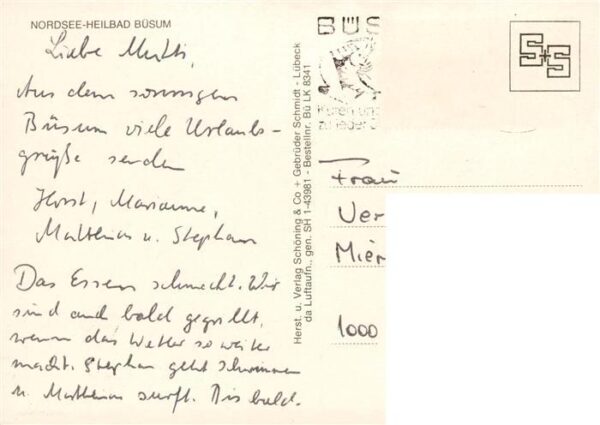 NORDSEE-HEILBAD BÜSUM
Liebe Mutti,
Aus dem sonnigen
Büsum viele Urlaubs-
grüße senden
Horst, Marianne,
Matthias u. Stephan
Das Essen schmeckt. Wir
sind auch bald gegrillt,
wenn das Wetter so weiter
macht. Stephan geht schwimmen
u. Matthias surft. Bis bald.
Herst. u. Verlag Schöning & Co + Gebrüder Schmidt - Lübeck
da Luftaufn., gen. SH 1-43981 - Bestellnr. Bü LK 8341
BÜS
Kuren und
zu jeder
S+S
Frau
Ver
Mier
1000